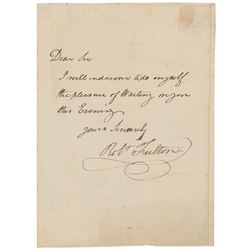 Dear Sir
I will endavour to do myself
the pleasure of Waiting on you
this Evening
yours Sincerely
Robt Fulton